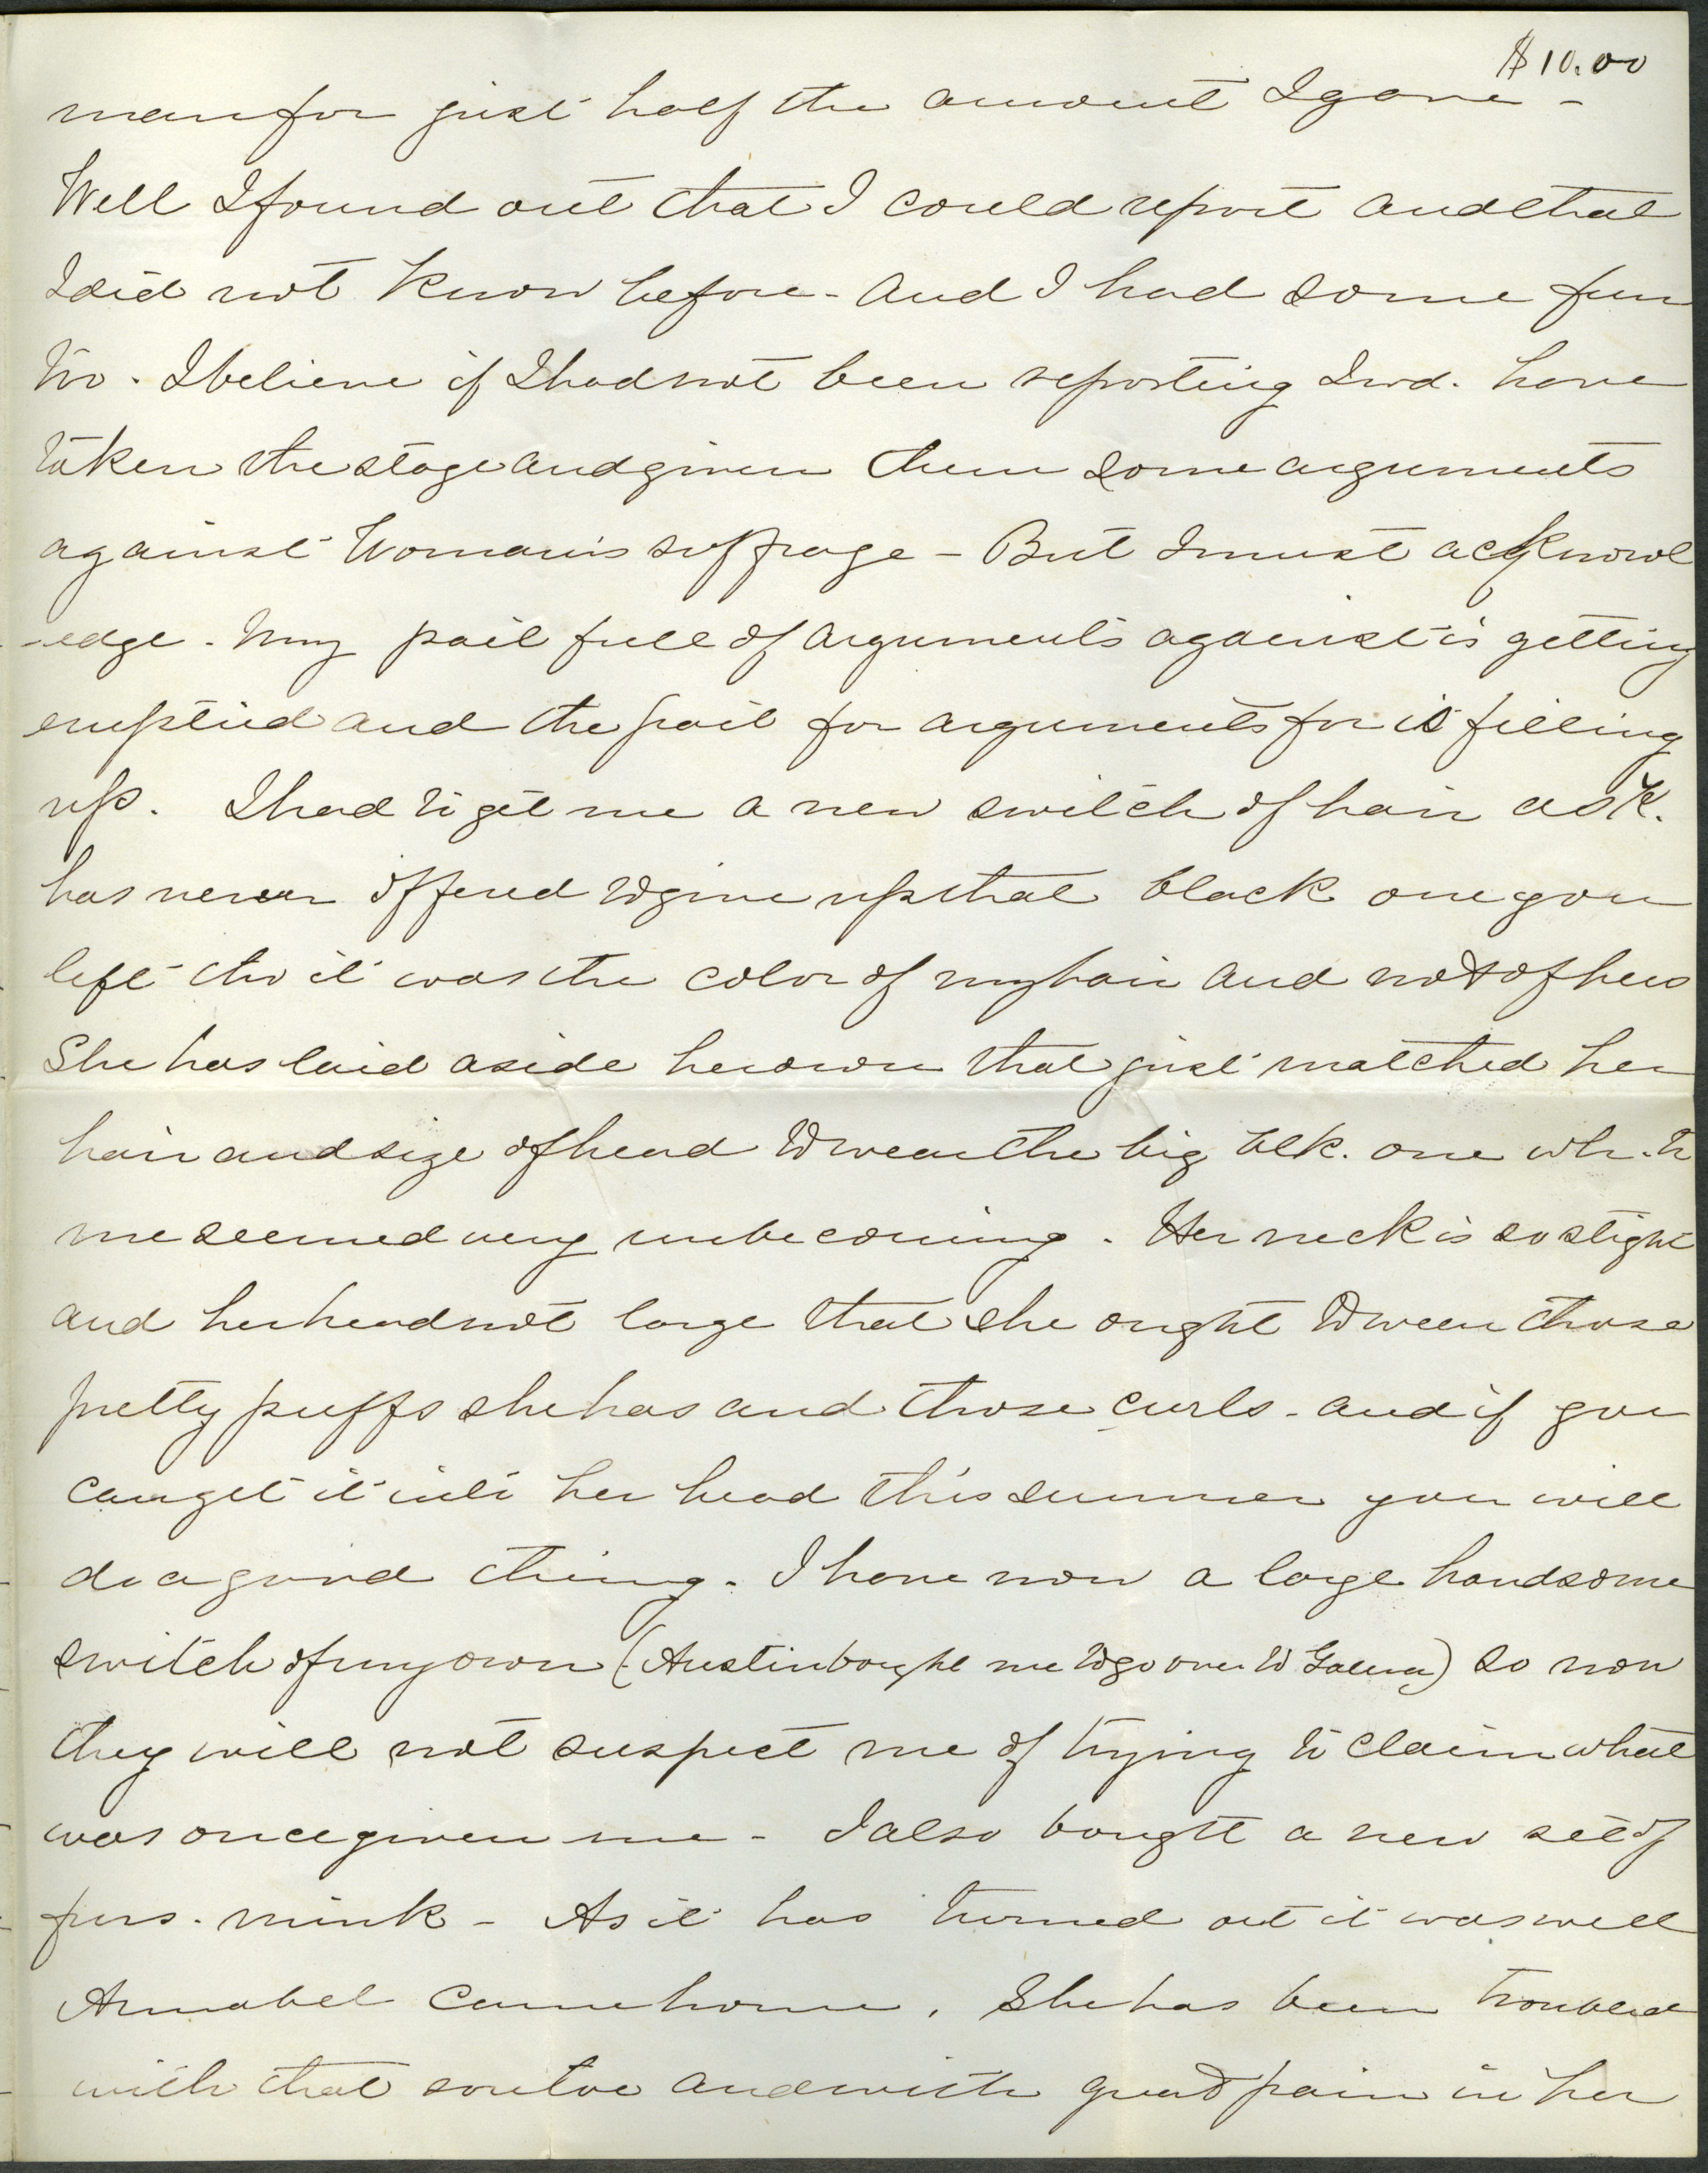 $10.00
man for just half the amount I gave -
Well I found out that I could report and that
I did not know before - and I had some fun
too. I believe if I had not been reporting I wd. have
taken the stage and given them some arguments
against Woman's suffrage - But I must acknowl
-edge - my pail full of arguments against is getting
emptied and the pail for arguments for is filling
up. I had to get me a new switch of hair as K.
has never offered to give up that black one you
left tho it was the color of my hair and not of hers
She has laid aside her own that just matched her
hair and size of head to wear the big blk. one wh. to
me seemed very unbecoming. Her neck is so slight
and her head not large that she ought to wear those
pretty puffs she has and those curls - and if you
can get it into her head this summer you will
do a good thing. I have now a large handsome
switch of my own (Austin bought me to go over to Galena) so now
they will not suspect me of trying to claim what
was once given me - I also bought a new set of
furs - mink - As it has turned out it was well
Annabel came home. She has been troubled
with that sore toe and with great pain in her